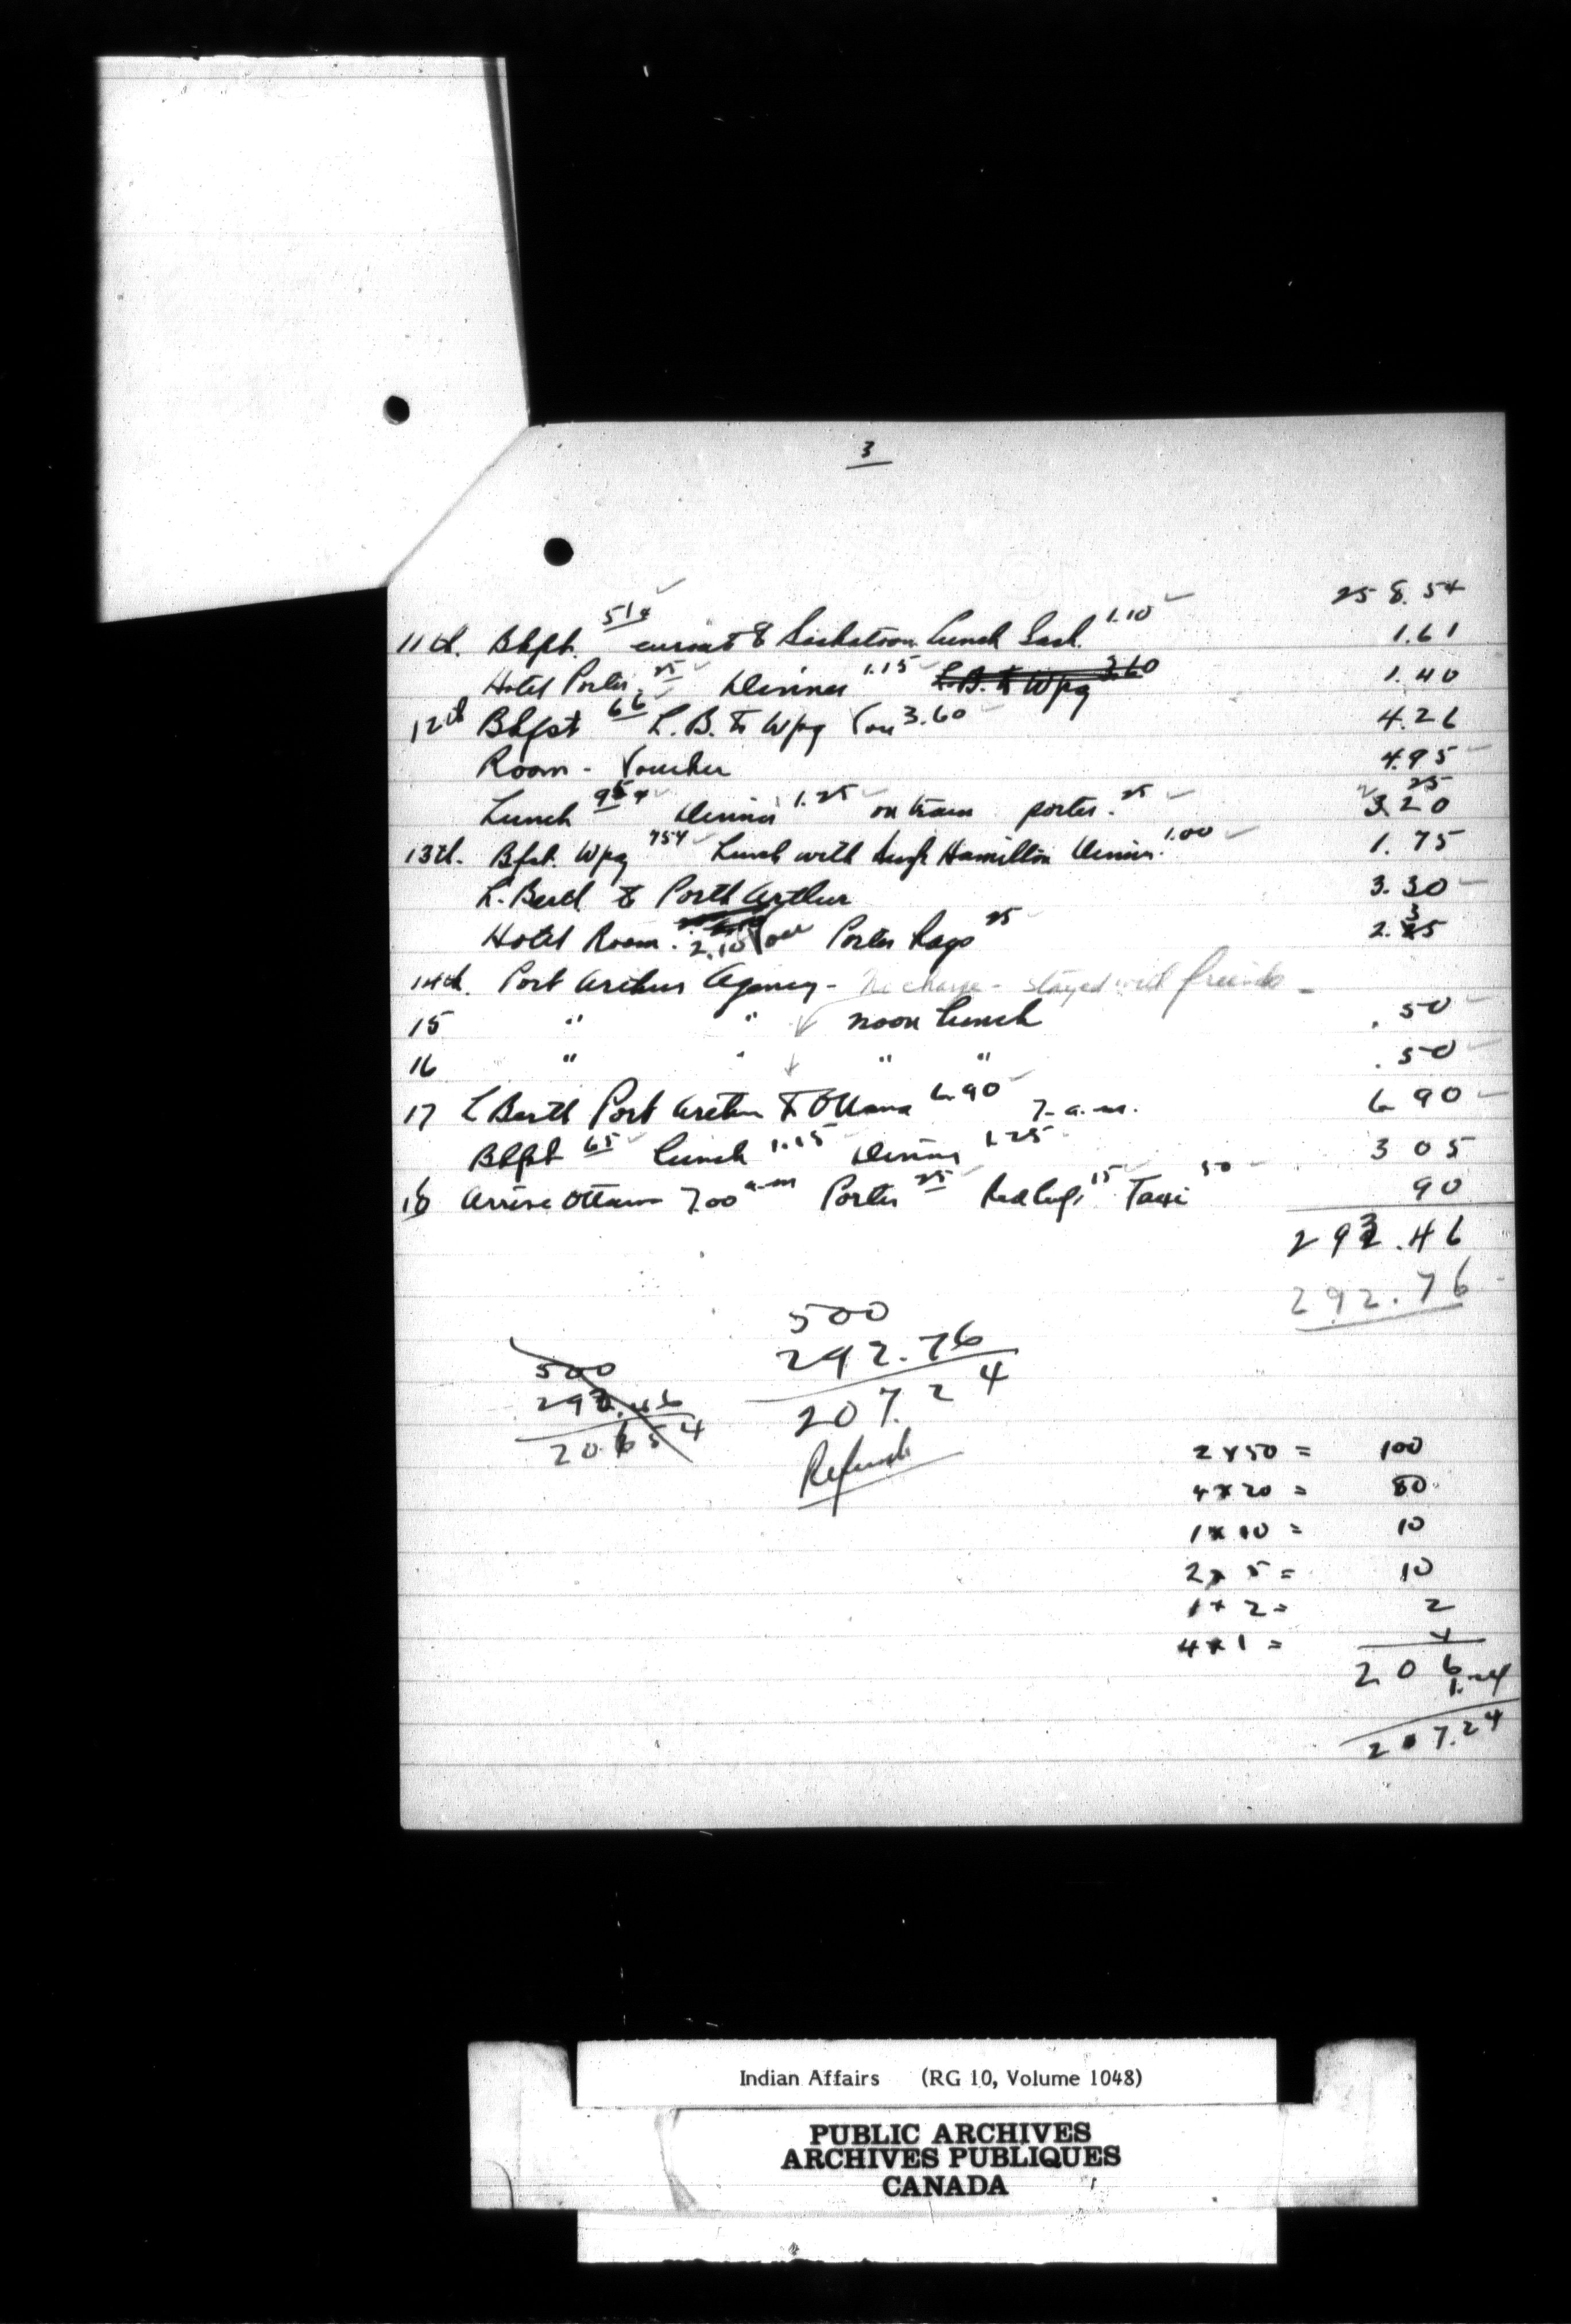 3
258.54
11th. Bkfst. 51¢ enroute to Saskatoon Lunch Sask. 1.10 1.61
Hotel Porter .25 Dinner 1.15 L.B. to Wpg 3.60 1.40
12th Bkfst 66 L.B. to Wpg Vou 3.60 4.26
Room - Voucher 4.95
Lunch 95¢ Dinner 1.25 on train porter .25 25
3 20
13th. Bfst. Wpg 75¢ Lunch with Hamilton Dinner 1.00 1.75
L. Berth to Port Arthur 3.30
Hotel Room. 2.10 Vou Porter bags 25 2.35
14th. Port Arthur Agency - No charge - stayed with friends -
15 " " noon lunch .50
16 " " " " .50
17 L Berth Port Arthur to Ottawa 6.90 7- a.m. 6 90
Bkfst 65 Lunch 1.15 Dinner 1.25 3 05
18 Arrive Ottawa 7.00 a.m Porter 25 Red Cap 15 Taxi 50 90
293.46
292.76
500
292.76
207.24
Refund
500
293.46
206 54
2 x 50 = 100
4 x 20 = 80
1 x 10 = 10
2 x 5 = 10
1 x 2 = 2
4 x 1 = 4
206
1.24
207.24
Indian Affairs (RG 10, Volume 1048)
PUBLIC ARCHIVES
ARCHIVES PUBLIQUES
CANADA